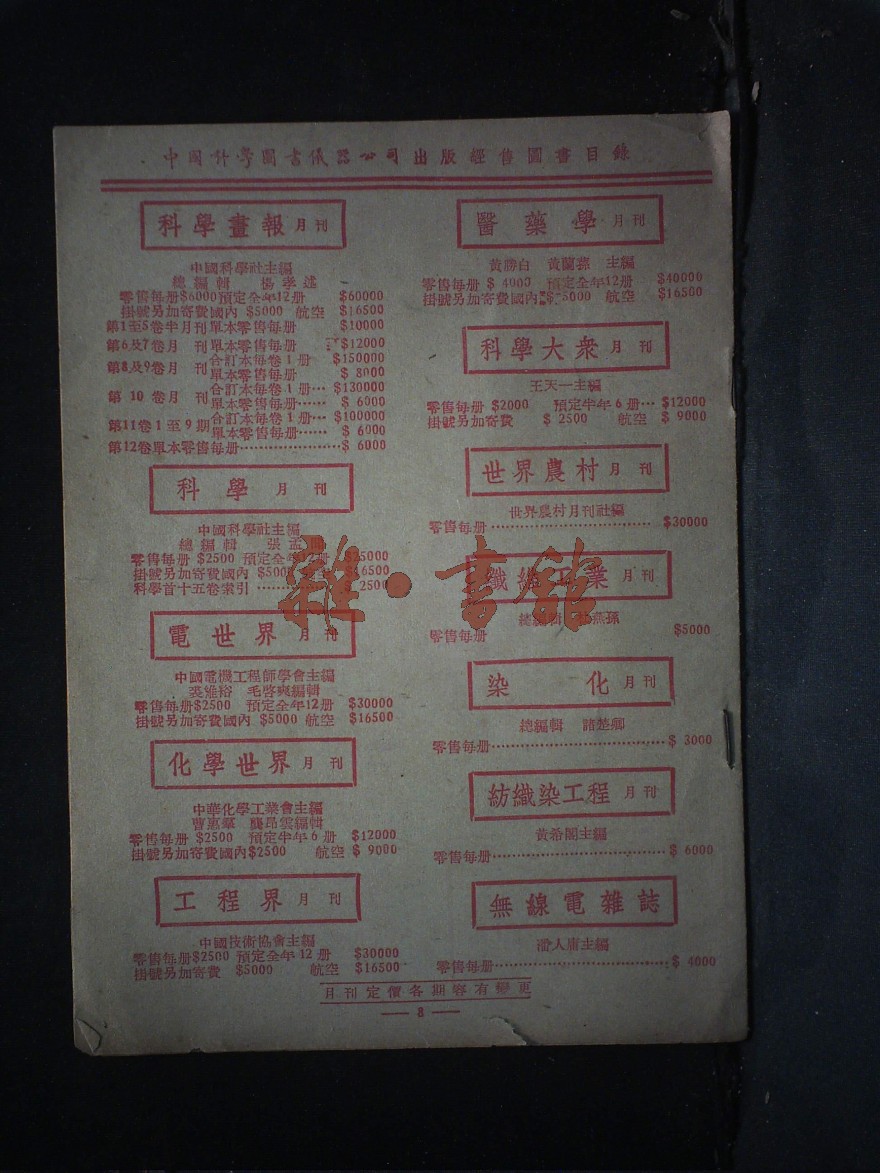 中國科學圖書儀器公司出版經售圖書目錄
科學畫報 月刊
中國科學社主編
總編輯 楊孝述
零售每册$6000預定全年12册 $60000
掛號另加寄費國內 $5000 航空 $16500
第1至5卷半月刊單本零售每册 $10000
第6及7卷月 刊單本零售每册 $12000
第8及9卷月刊 合訂本每卷1册 $150000
單本零售每册 $ 8000
第 10 卷月 刊 合訂本每卷1册… $130000
單本零售每册…… $ 6000
第11卷1至9期 合訂本每卷1册… $100000
單本零售每册…… $ 6000
第12卷單本零售每册……………… $ 6000
科學 月刊
中國科學社主編
總編輯 張孟
零售每册 $2500 預定全年12册 $25000
掛號另加寄費國內 $5000 $16500
科學首十五卷索引 ………… 2500
電世界 月刊
中國電機工程師學會主編
裘維裕 毛啓爽編輯
零售每册$2500 預定全年12册 $30000
掛號另加寄費國內 $5000 航空 $16500
化學世界 月刊
中華化學工業會主編
曹惠羣 龔昂雲編輯
零售每册 $2500 預定半年6册 $12000
掛號另加寄費國內$2500 航空 $ 9000
工程界 月刊
中國技術協會主編
零售每册$2500 預定全年12册 $30000
掛號另加寄費 $5000 航空 $16500
醫藥學 月刊
黃勝白 黃蘭孫 主編
零售每册 $ 4000 預定全年12册 $40000
掛號另加寄費國內 $ 5000 航空 $16500
科學大衆 月刊
王天一主編
零售每册 $2000 預定半年6册… $12000
掛號另加寄費 $ 2500 航空 $ 9000
世界農村 月刊
世界農村月刊社編
零售每册………………………… $30000
纖維工業 月刊
總編輯 燕孫
零售每册 $5000
染化 月刊
總編輯 諸楚卿
零售每册……………………………$ 3000
紡織染工程 月刊
黃希閣主編
零售每册……………………………$ 6000
無線電雜誌
潘人庸主編
零售每册……………………………$ 4000
月刊定價各期容有變更
— 8 —
雜·書館